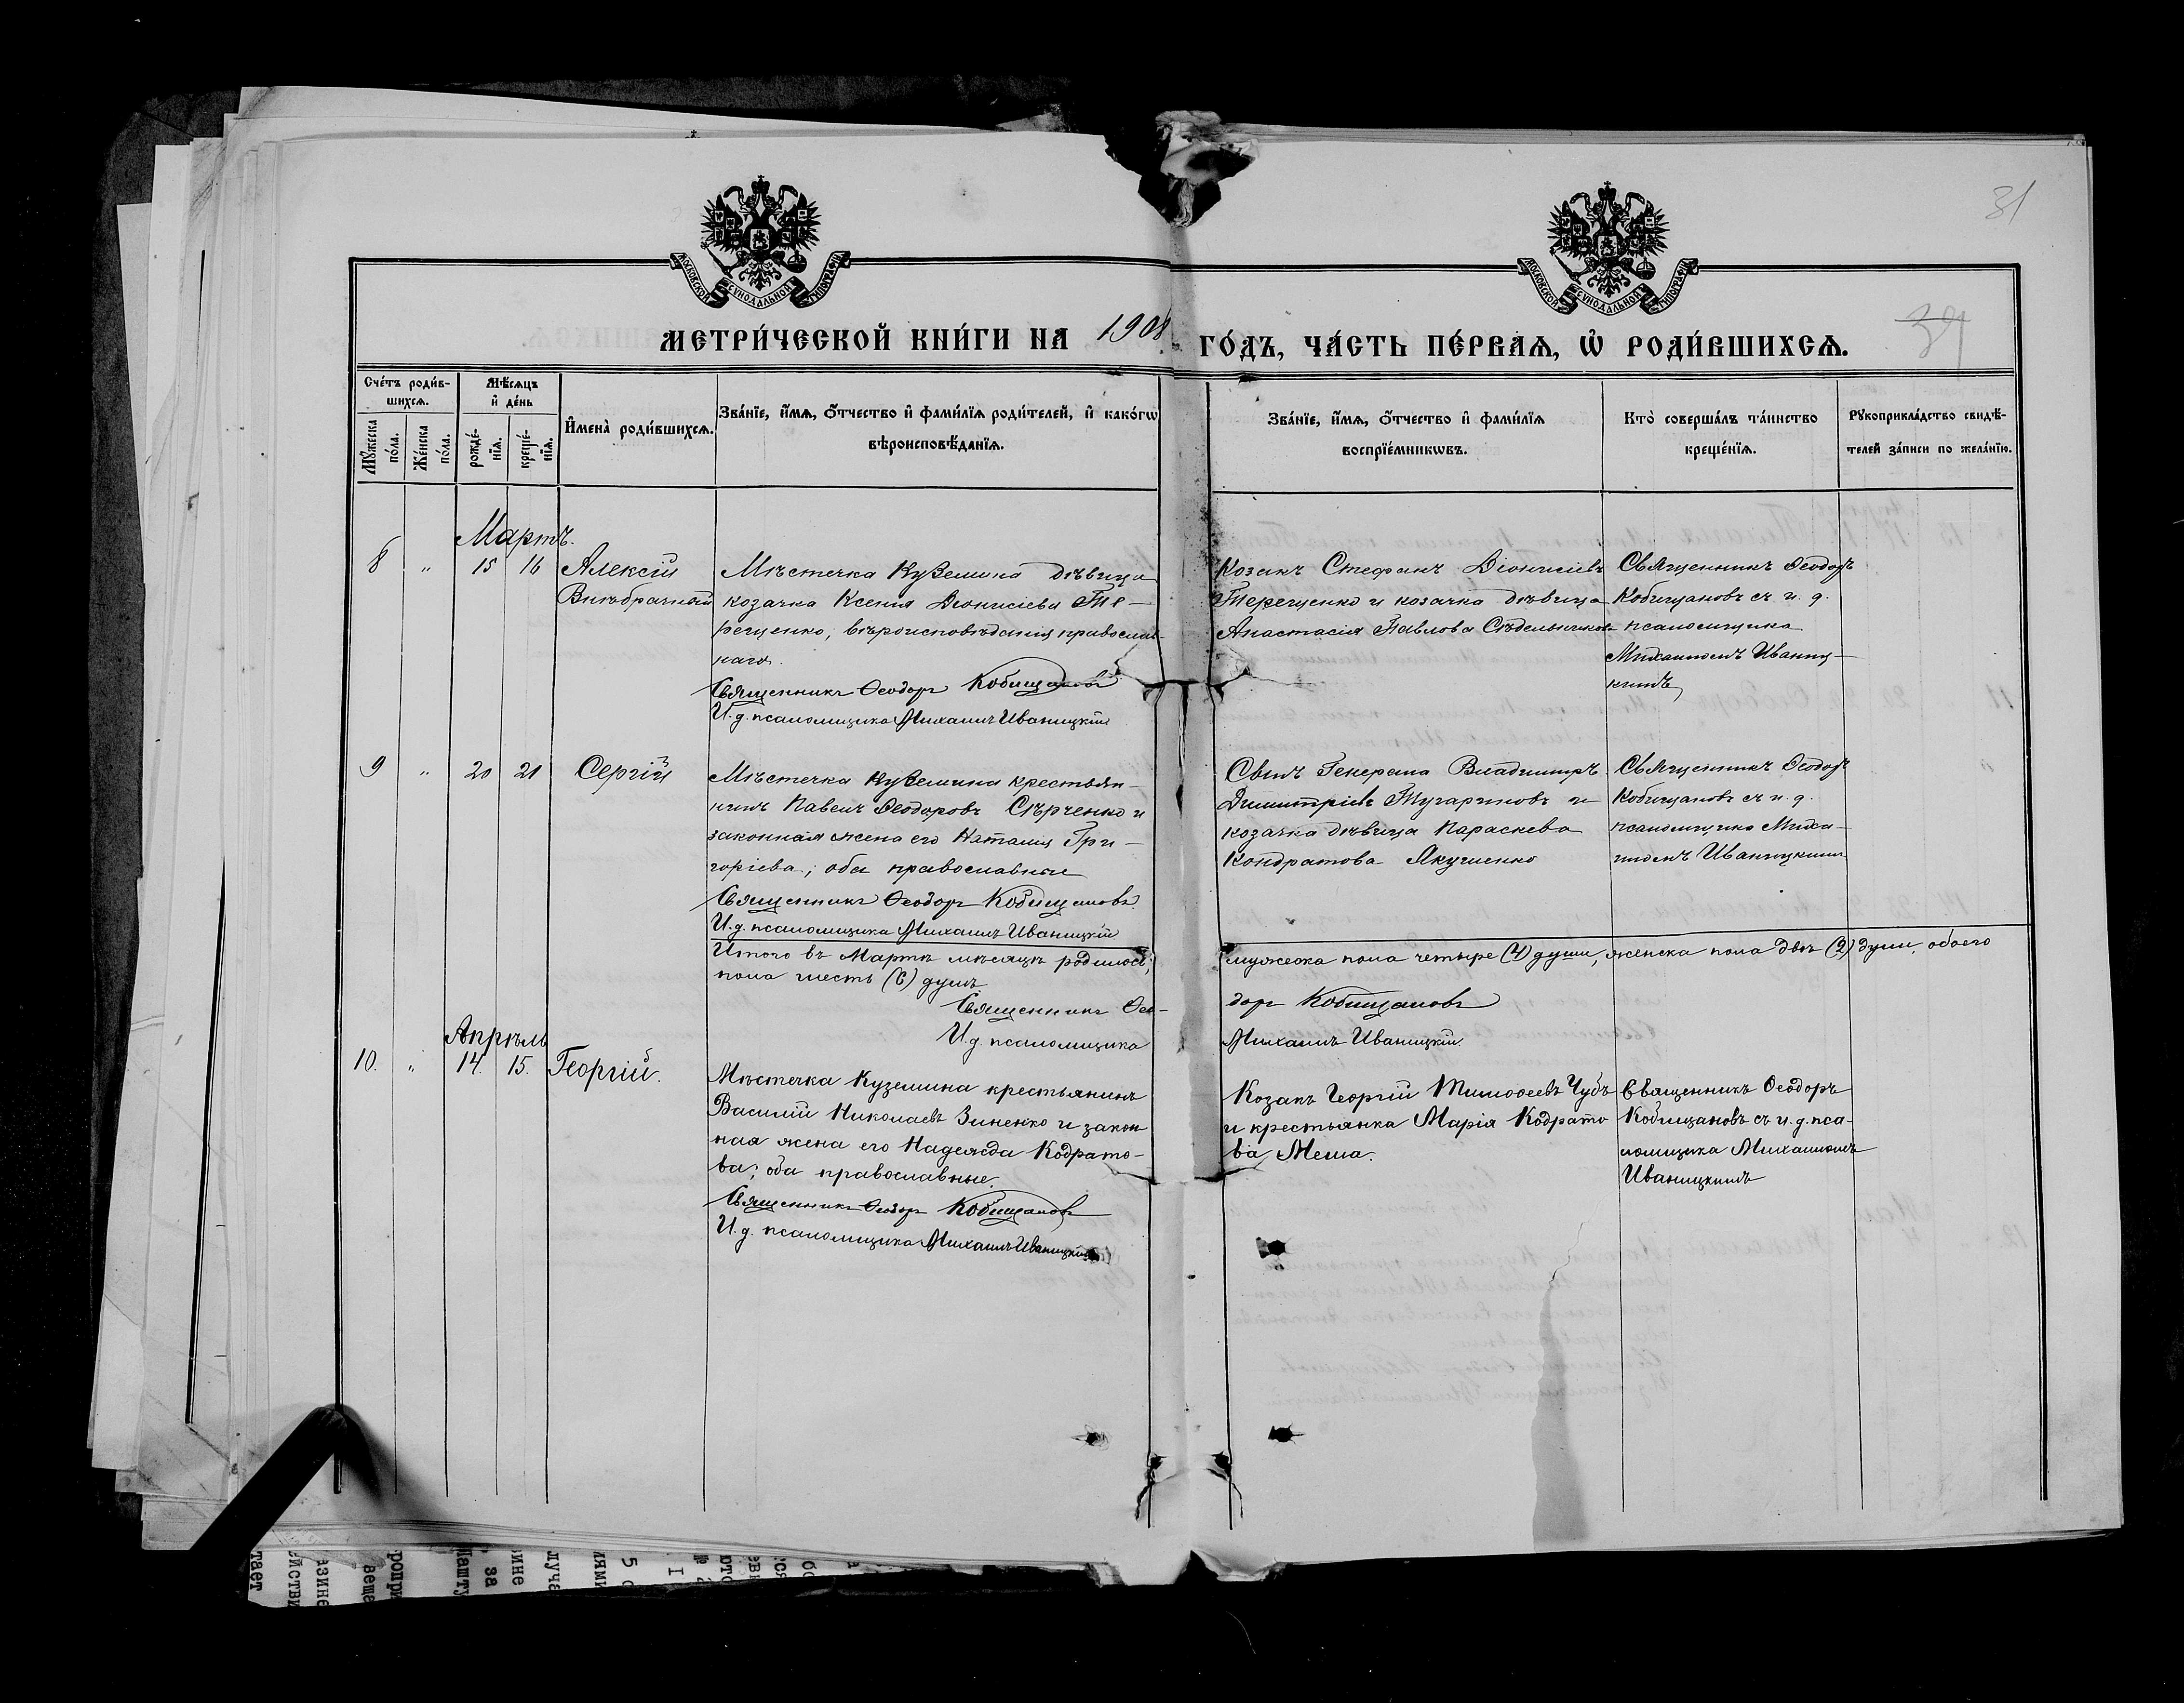 31
МОСКОВСКОЙ СѴНОДАЛЬНОЙ ТИПОГРАФІИ
МОСКОВСКОЙ СѴНОДАЛЬНОЙ ТИПОГРАФІИ
МЕТРИ́ЧЕСКОЙ КНИ́ГИ НА 1908 ГО́ДЪ, ЧА́СТЬ ПЕ́РВАѦ, Ѡ҆ РОДИ́ВШИХСѦ.
Сче́тъ роди́в-
шихсѧ.
Мꙋ́жеска по́ла.
Же́нска по́ла.
Мѣ́сѧцъ
и҆ де́нь
рожде́-
нїѧ.
креще́-
нїѧ.
И҆мена̀ роди́вшихсѧ.
Зва́нїе, и҆́мѧ, ѻ҆́тчество и҆ фами́лїѧ роди́телей, и҆ како́гѡ
вѣроисповѣ́данїѧ.
Зва́нїе, и҆́мѧ, ѻ҆́тчество и҆ фами́лїѧ
воспрїе́мникѡвъ.
Кто̀ соверша́лъ та́инство
креще́нїѧ.
Рꙋкоприкла́дство свидѣ́-
телей за́писи по жела́нїю.
Мартъ.
8 " 15 16 Алексій
Внѣбрачный
Мѣстечка Куземина дѣвица
козачка Ксенія Діонисіева Те-
рещенко, вѣроисповѣданія православ-
наго.
Священникъ Ѳеодоръ Кобищановъ
И. д. псаломщика Михаилъ Иваницкій
Козакъ Стефанъ Діонисіевъ
Терещенко и козачка дѣвица
Анастасія Павлова Сѣдельникова
Священникъ Ѳеодоръ
Кобищановъ съ и. д.
псаломщика
Михаиломъ Иваниц-
кимъ
9 " 20 21 Сергій
Мѣстечка Куземина крестьян-
инъ Павелъ Ѳеодоровъ Сѣрченко и
законная жена его Наталія Гри-
горіева; оба православные
Священникъ Ѳеодоръ Кобищановъ
И. д. псаломщика Михаилъ Иваницкій
Сынъ Генерала Владимиръ
Димитріевъ Тугариновъ и
козачка дѣвица Параскева
Кондратова Якушенко
Священникъ Ѳеодоръ
Кобищановъ съ и. д.
псаломщика Миха-
иломъ Иваницкимъ
Итого въ Мартѣ мѣсяцѣ родилось; мужеска пола четыре (4) души, женска пола двѣ (2) души, обоего
пола шесть (6) душъ.
Священникъ Ѳео- доръ Кобищановъ
И. д. псаломщика Михаилъ Иваницкій.
Апрѣль
10. " 14. 15. Георгій.
Мѣстечка Куземина крестьянинъ
Василій Николаевъ Зиненко и закон
ная жена его Надежда Кодрато-
ва; оба православные.
Священникъ Ѳеодоръ Кобищановъ
И. д. псаломщика Михаилъ Иваницкій
Козакъ Георгій Тимоѳеевъ Чубъ
и крестьянка Марія Кодрато
ва Меша.
Священникъ Ѳеодоръ
Кобищановъ съ и. д. пса-
ломщика Михаиломъ
Иваницкимъ